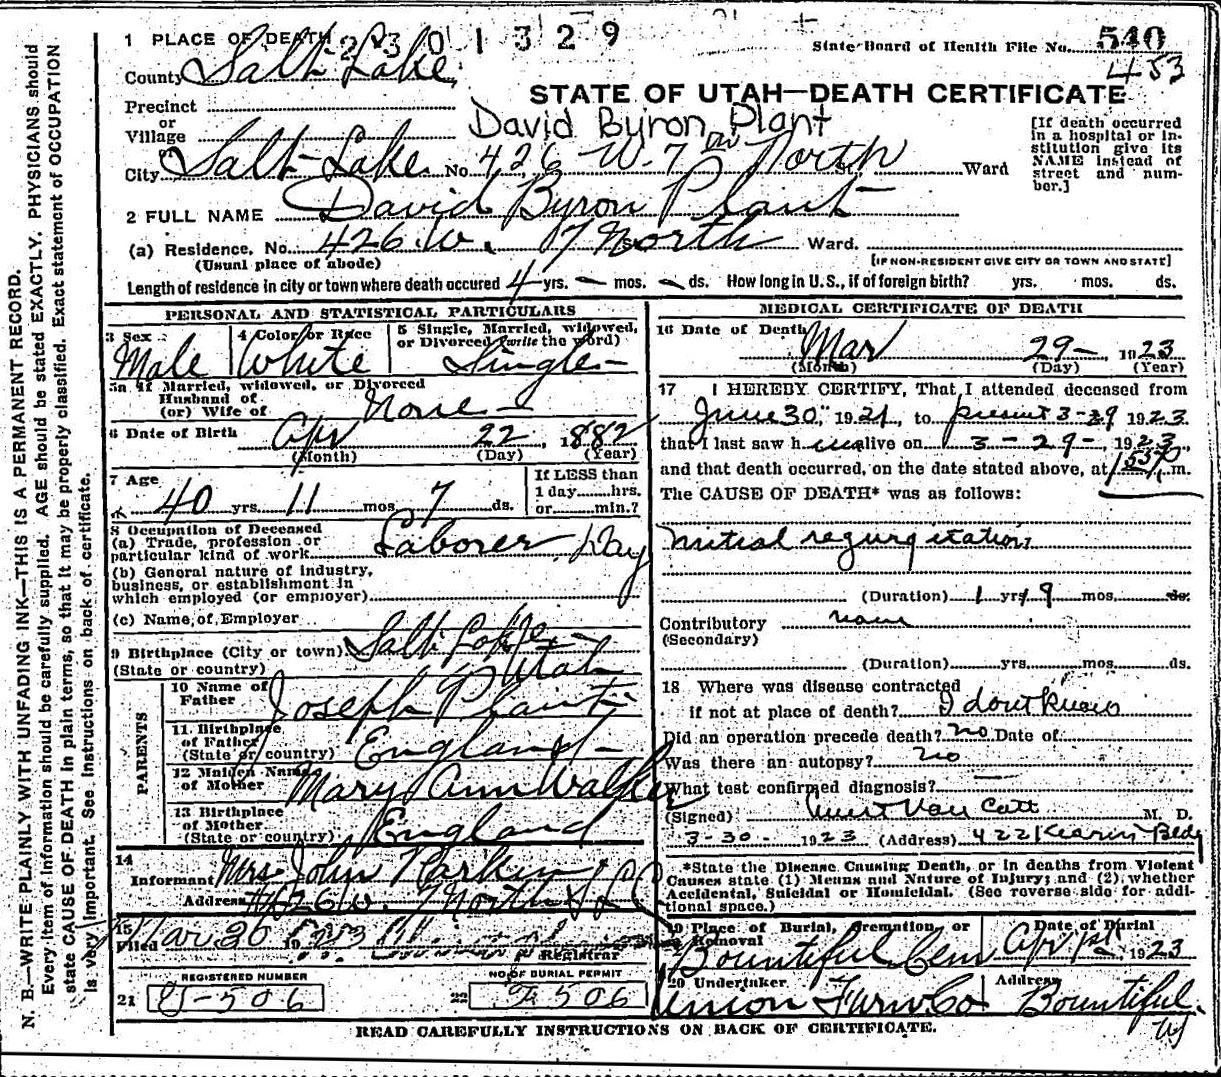 Plant
2301329
1 PLACE OF DEATH
State Board of Health File No. 540
453
County Salt Lake
STATE OF UTAH—DEATH CERTIFICATE
Precinct
or
Village
David Byron Plant
[If death occurred in a hospital or institution give its NAME instead of street and number.]
City Salt Lake No. 426 W. 7 North St. Ward
2 FULL NAME David Byron Plant
(a) Residence, No. 426 W. 7 North St. Ward.
(Usual place of abode)
[IF NON-RESIDENT GIVE CITY OR TOWN AND STATE]
Length of residence in city or town where death occured 4 yrs. — mos. — ds. How long in U.S., if of foreign birth? yrs. mos. ds.
PERSONAL AND STATISTICAL PARTICULARS
3 Sex Male
4 Color or Race White
5 Single, Married, widowed, or Divorced (write the word) Single
5a If Married, widowed, or Divorced
Husband of
(or) Wife of None
6 Date of Birth Apr 22, 1882
(Month) (Day) (Year)
7 Age 40 yrs. 11 mos. 7 ds.
If LESS than
1 day......hrs.
or......min.?
8 Occupation of Deceased
(a) Trade, profession or
particular kind of work Laborer, Day
(b) General nature of industry,
business, or establishment in
which employed (or employer)
(c) Name of Employer
9 Birthplace (City or town) Salt Lake
(State or country) Utah
PARENTS
10 Name of
Father Joseph Plant
11. Birthplace
of Father
(State or country) England
12 Maiden Name
of Mother Mary Ann Walker
13 Birthplace
of Mother
(State or country) England
14
Informant Mrs John Harkin
Address 426 W. 7 North S L C
15
Filed Mar 30 1923
Registrar
REGISTERED NUMBER
21
NO. OF BURIAL PERMIT
22 506
MEDICAL CERTIFICATE OF DEATH
16 Date of Death Mar 29—, 1923
(Month) (Day) (Year)
17 I HEREBY CERTIFY, That I attended deceased from
June 30, 1921, to present 3-29 1923
that I last saw h im alive on 3-29-, 1923
and that death occurred, on the date stated above, at m.
The CAUSE OF DEATH* was as follows:
Mitral regurgitation
(Duration) 1 yrs 9 mos. ds.
Contributory none
(Secondary)
(Duration) yrs. mos. ds.
18 Where was disease contracted
if not at place of death? I dont know
Did an operation precede death? no Date of
Was there an autopsy? no
What test confirmed diagnosis?
(Signed) Van Cott M. D.
3-30- 1923 (Address) 422 Kearns Bldg
*State the Disease Causing Death, or in deaths from Violent
Causes state (1) Means and Nature of Injury; and (2) whether
Accidental, Suicidal or Homicidal. (See reverse side for addi-
tional space.)
19 Place of Burial, Cremation, or
Removal Bountiful Cem
Date of Burial
Apr 1st 1923
20 Undertaker
Union Furn. Co
Address
Bountiful
READ CAREFULLY INSTRUCTIONS ON BACK OF CERTIFICATE.
N. B.—WRITE PLAINLY WITH UNFADING INK—THIS IS A PERMANENT RECORD.
Every item of information should be carefully supplied. AGE should be stated EXACTLY. PHYSICIANS should
state CAUSE OF DEATH in plain terms, so that it may be properly classified. Exact statement of OCCUPATION
is very important. See instructions on back of certificate.